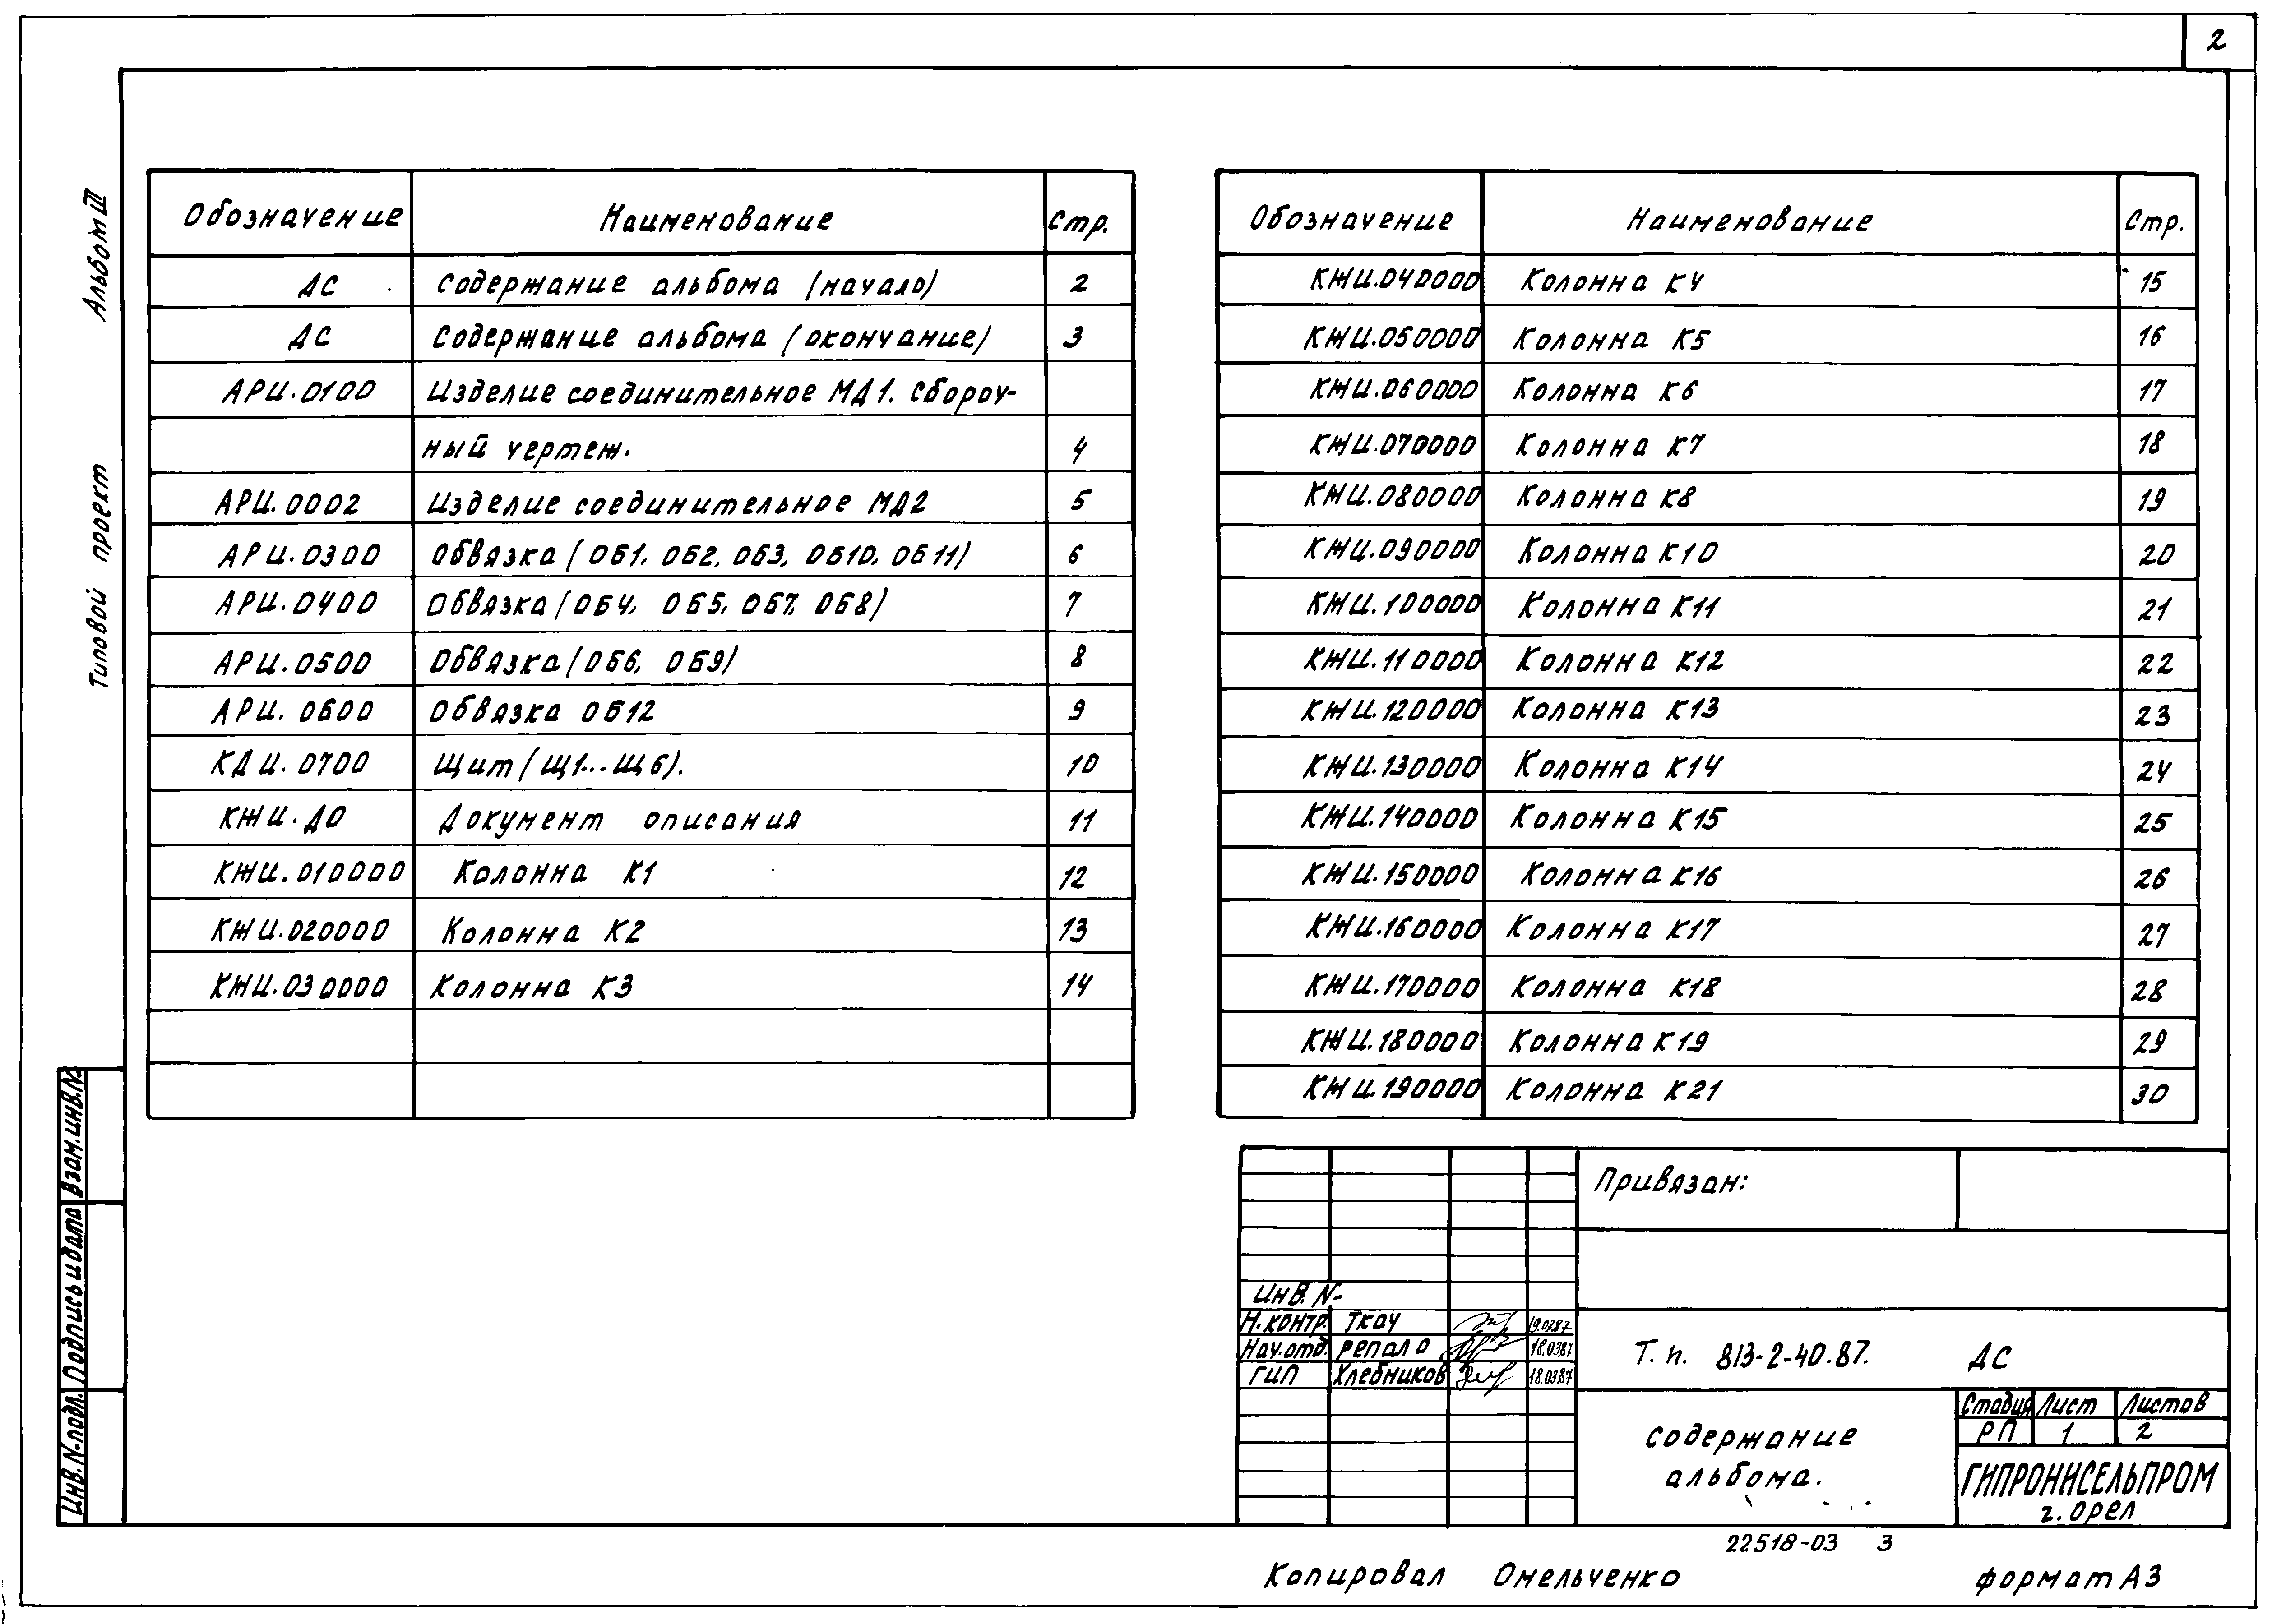 2
Альбом III
Типовой проект
Обозначение Наименование Стр.
ДС Содержание альбома (начало) 2
ДС Содержание альбома (окончание) 3
АРИ.0100 Изделие соединительное МД1. Сбороч-
ный чертеж. 4
АРИ.0002 Изделие соединительное МД2 5
АРИ.0300 Обвязка (ОБ1, ОБ2, ОБ3, ОБ10, ОБ11) 6
АРИ.0400 Обвязка (ОБ4, ОБ5, ОБ7, ОБ8) 7
АРИ.0500 Обвязка (ОБ6, ОБ9) 8
АРИ.0600 Обвязка ОБ12 9
КДИ.0700 Щит (Щ1...Щ6). 10
КЖИ.ДО Документ описания 11
КЖИ.010000 Колонна К1 12
КЖИ.020000 Колонна К2 13
КЖИ.030000 Колонна К3 14
Обозначение Наименование Стр.
КЖИ.040000 Колонна К4 15
КЖИ.050000 Колонна К5 16
КЖИ.060000 Колонна К6 17
КЖИ.070000 Колонна К7 18
КЖИ.080000 Колонна К8 19
КЖИ.090000 Колонна К10 20
КЖИ.100000 Колонна К11 21
КЖИ.110000 Колонна К12 22
КЖИ.120000 Колонна К13 23
КЖИ.130000 Колонна К14 24
КЖИ.140000 Колонна К15 25
КЖИ.150000 Колонна К16 26
КЖИ.160000 Колонна К17 27
КЖИ.170000 Колонна К18 28
КЖИ.180000 Колонна К19 29
КЖИ.190000 Колонна К21 30
Взам.инв.N
Подпись и дата
Инв.N-подл.
Привязан:
Инв. N-
Н.контр. Ткач 19.0387
Нач.отд. Репало 18.0387
ГИП Хлебников 18.0387
Т.п. 813-2-40.87. ДС
Содержание
альбома.
Стадия Лист Листов
РП 1 2
ГИПРОНИСЕЛЬПРОМ
г.Орел
22518-03 3
Копировал Омельченко формат А3